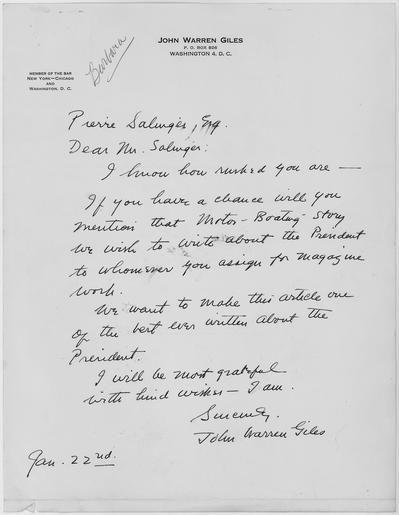 JOHN WARREN GILES
P. O. BOX 826
WASHINGTON 4, D. C.
MEMBER OF THE BAR
NEW YORK—CHICAGO
AND
WASHINGTON, D. C.
Barbara
Pierre Salinger, Esq.
Dear Mr. Salinger:
I know how rushed you are —
If you have a chance will you
mention that Motor-Boating Story
we wish to write about the President
to whomever you assign for magazine
work.
We want to make this article one
of the best ever written about the
President.
I will be most grateful
with kind wishes — I am.
Sincerely,
John Warren Giles
Jan. 22nd.